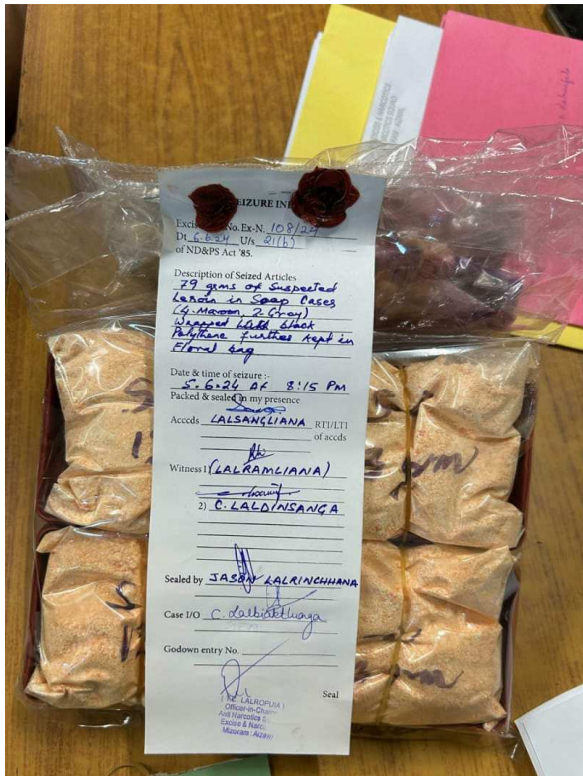 SEIZURE IN
Excise No. Ex-N. 108/24
Dt 6.6.24 U/s 21(b)
of ND&PS Act '85.
Description of Seized Articles
79 grms of Suspected
in Soap Cases
(4 Maroon, 2 Gray)
Wrapped black
Polythene further kept in
Floral bag
Date & time of seizure :-
5.6.24 At 8:15 PM
Packed & sealed in my presence
Accds LALSANGLIANA RTI/LTI
of accds
Witness 1) (LALRAMLIANA)
2) C. LALDINSANGA
Sealed by JASON LALRINCHHANA
Case I/O C. Lalbiakthanga
Godown entry No.
Seal
LALROPUIA )
Officer-in-Charge
Anti Narcotics
Excise & Narc.
Mizoram : Aizawl